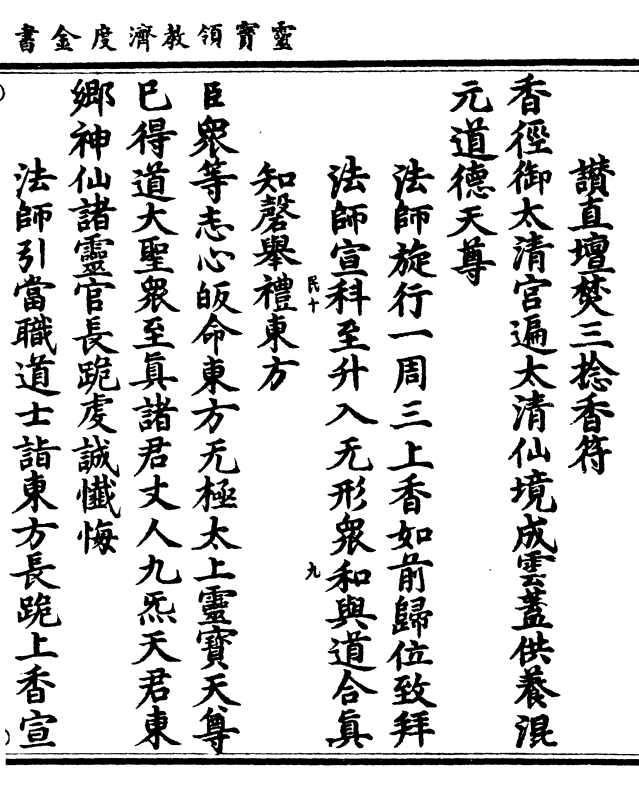 靈寳領敎濟度金書
讃直壇焚三捻香符
香徑御太清宫遍太清仙境成雲蓋供養混
元道德天尊
法師旋行一周三上香如前歸位致拜
法師宣科至升入无形衆和與道合眞
民十
九
知磬舉禮東方
臣衆等志心皈命東方无極太上靈寳天尊
已得道大聖衆至眞諸君丈人九炁天君東
鄉神仙諸靈官長跪虔誠懺悔
法師引當職道士詣東方長跪上香宣